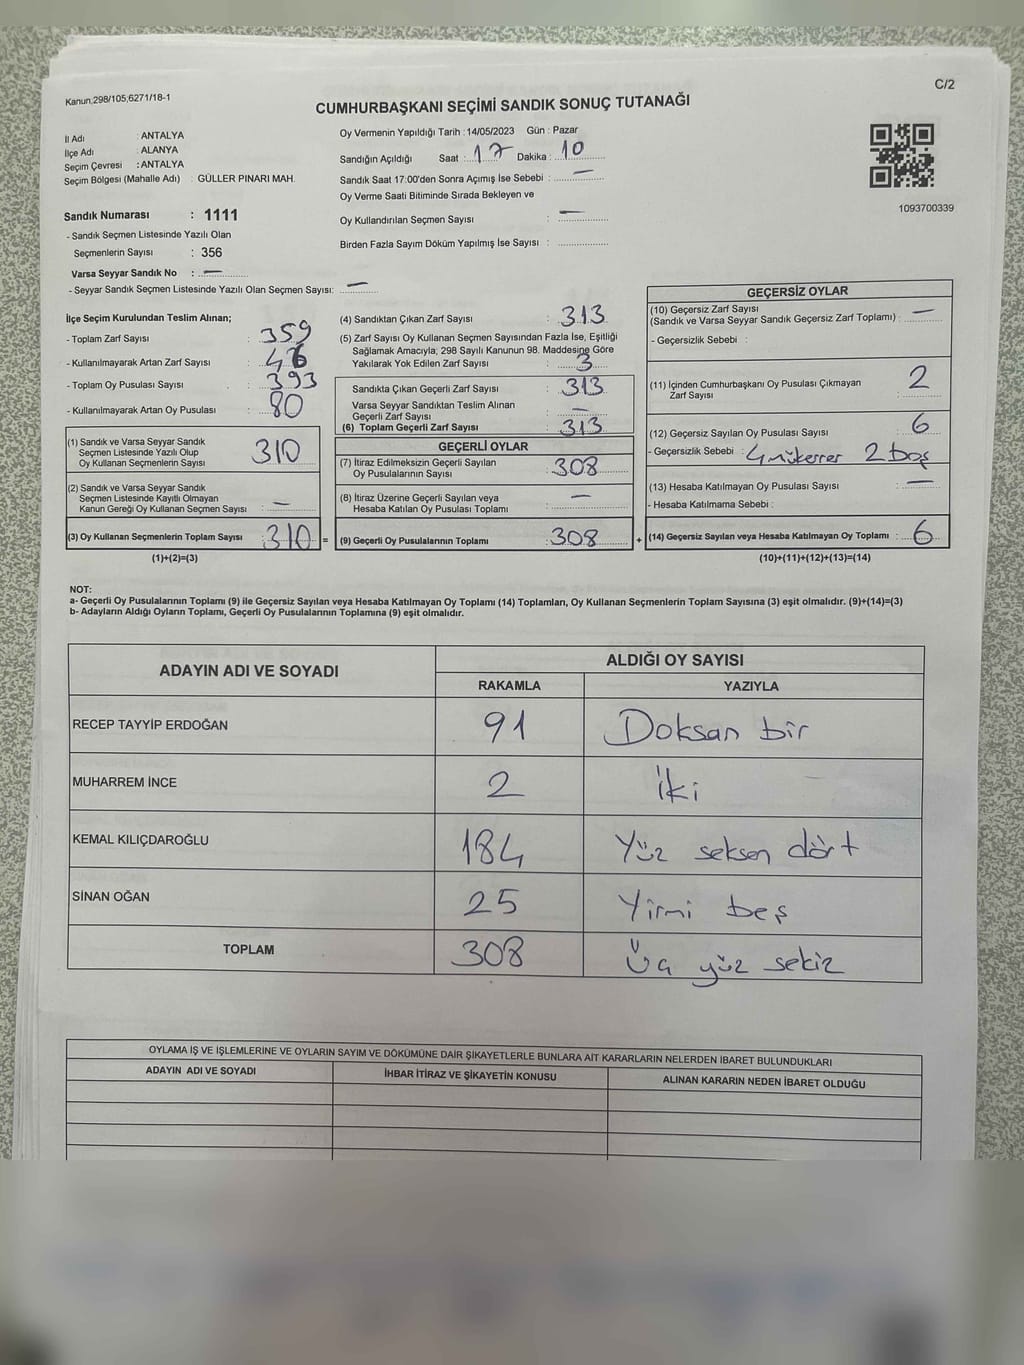 Kanun,298/105;6271/18-1
C/2
CUMHURBAŞKANI SEÇİMİ SANDIK SONUÇ TUTANAĞI
İl Adı : ANTALYA
İlçe Adı : ALANYA
Seçim Çevresi : ANTALYA
Seçim Bölgesi (Mahalle Adı) : GÜLLER PINARI MAH.
Oy Vermenin Yapıldığı Tarih : 14/05/2023 Gün : Pazar
Sandığın Açıldığı Saat : 17 Dakika : 10
Sandık Saat 17:00'den Sonra Açımış İse Sebebi : —
Oy Verme Saati Bitiminde Sırada Bekleyen ve
Oy Kullandırılan Seçmen Sayısı : —
Birden Fazla Sayım Döküm Yapılmış İse Sayısı :
1093700339
Sandık Numarası : 1111
- Sandık Seçmen Listesinde Yazılı Olan
Seçmenlerin Sayısı : 356
Varsa Seyyar Sandık No : —
- Seyyar Sandık Seçmen Listesinde Yazılı Olan Seçmen Sayısı: —
İlçe Seçim Kurulundan Teslim Alınan;
- Toplam Zarf Sayısı : 359
- Kullanılmayarak Artan Zarf Sayısı : 46
- Toplam Oy Pusulası Sayısı : 393
- Kullanılmayarak Artan Oy Pusulası : 80
(1) Sandık ve Varsa Seyyar Sandık
Seçmen Listesinde Yazılı Olup
Oy Kullanan Seçmenlerin Sayısı 310
(2) Sandık ve Varsa Seyyar Sandık
Seçmen Listesinde Kayıtlı Olmayan
Kanun Gereği Oy Kullanan Seçmen Sayısı : —
(3) Oy Kullanan Seçmenlerin Toplam Sayısı : 310 =
(1)+(2)=(3)
(4) Sandıktan Çıkan Zarf Sayısı : 313
(5) Zarf Sayısı Oy Kullanan Seçmen Sayısından Fazla İse, Eşitliği
Sağlamak Amacıyla; 298 Sayılı Kanunun 98. Maddesine Göre
Yakılarak Yok Edilen Zarf Sayısı : 3
Sandıkta Çıkan Geçerli Zarf Sayısı : 313
Varsa Seyyar Sandıktan Teslim Alınan
Geçerli Zarf Sayısı : —
(6) Toplam Geçerli Zarf Sayısı : 313
GEÇERLİ OYLAR
(7) İtiraz Edilmeksizin Geçerli Sayılan
Oy Pusulalarının Sayısı : 308
(8) İtiraz Üzerine Geçerli Sayılan veya
Hesaba Katılan Oy Pusulası Toplamı : —
(9) Geçerli Oy Pusulalarının Toplamı : 308 +
GEÇERSİZ OYLAR
(10) Geçersiz Zarf Sayısı
(Sandık ve Varsa Seyyar Sandık Geçersiz Zarf Toplamı) : —
- Geçersizlik Sebebi :
(11) İçinden Cumhurbaşkanı Oy Pusulası Çıkmayan
Zarf Sayısı : 2
(12) Geçersiz Sayılan Oy Pusulası Sayısı : 6
- Geçersizlik Sebebi : 4 mükerrer 2 boş
(13) Hesaba Katılmayan Oy Pusulası Sayısı : —
- Hesaba Katılmama Sebebi :
(14) Geçersiz Sayılan veya Hesaba Katılmayan Oy Toplamı : 6
(10)+(11)+(12)+(13)=(14)
NOT:
a- Geçerli Oy Pusulalarının Toplamı (9) ile Geçersiz Sayılan veya Hesaba Katılmayan Oy Toplamı (14) Toplamları, Oy Kullanan Seçmenlerin Toplam Sayısına (3) eşit olmalıdır. (9)+(14)=(3)
b- Adayların Aldığı Oyların Toplamı, Geçerli Oy Pusulalarının Toplamına (9) eşit olmalıdır.
ADAYIN ADI VE SOYADI ALDIĞI OY SAYISI
RAKAMLA YAZIYLA
RECEP TAYYİP ERDOĞAN 91 Doksan bir
MUHARREM İNCE 2 iki
KEMAL KILIÇDAROĞLU 184 Yüz seksen dört
SİNAN OĞAN 25 Yirmi beş
TOPLAM 308 Üç yüz sekiz
OYLAMA İŞ VE İŞLEMLERİNE VE OYLARIN SAYIM VE DÖKÜMÜNE DAİR ŞİKAYETLERLE BUNLARA AİT KARARLARIN NELERDEN İBARET BULUNDUKLARI
ADAYIN ADI VE SOYADI İHBAR İTİRAZ VE ŞİKAYETİN KONUSU ALINAN KARARIN NEDEN İBARET OLDUĞU